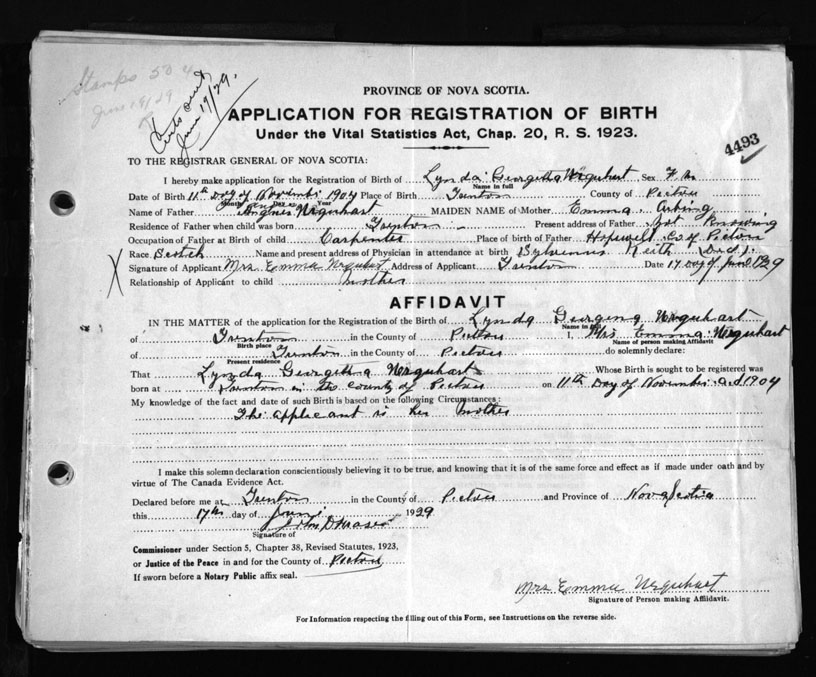 Stamps 50 ¢
June 19/29
Certs sent
June 19/29.
PROVINCE OF NOVA SCOTIA.
APPLICATION FOR REGISTRATION OF BIRTH
Under the Vital Statistics Act, Chap. 20, R. S. 1923.
4493
TO THE REGISTRAR GENERAL OF NOVA SCOTIA:
I hereby make application for the Registration of Birth of Lynda Georgetha Urquhart Sex F
Name in full
Date of Birth 11th Day of November 1904 Place of Birth Trenton County of Pictou
Month Day Year
Name of Father Urquhart MAIDEN NAME of Mother Emma
Residence of Father when child was born Trenton Present address of Father Not Knowing
Occupation of Father at Birth of child Carpenter Place of birth of Father Hopewell Co of Pictou
Race Scotch Name and present address of Physician in attendance at birth Sylvenus Keith (Decd).
Signature of Applicant Mrs Emma Urquhart Address of Applicant Trenton Date 17 Day of June 1929
Relationship of Applicant to child Mother
AFFIDAVIT
IN THE MATTER of the application for the Registration of the Birth of Lynda Georgena Urquhart
Name in full
of Trenton in the County of Pictou I, Mrs Emma Urquhart
Birth place Name of person making Affidavit
of Trenton in the County of Pictou do solemnly declare:
Present residence
That Lynda Georgetha Urquhart Whose Birth is sought to be registered was
born at Trenton in the County of Pictou on 11th Day of November A.D. 1904
My knowledge of the fact and date of such Birth is based on the following Circumstances:
The applicant is her Mother
I make this solemn declaration conscientiously believing it to be true, and knowing that it is of the same force and effect as if made under oath and by
virtue of The Canada Evidence Act.
Declared before me at Trenton in the County of Pictou and Province of Nova Scotia
this 17th day of June 1929
John D
Signature of
Commissioner under Section 5, Chapter 38, Revised Statutes, 1923,
or Justice of the Peace in and for the County of Pictou
If sworn before a Notary Public affix seal.
Mrs Emma Urquhart
Signature of Person making Affidavit.
For Information respecting the filling out of this Form, see Instructions on the reverse side.